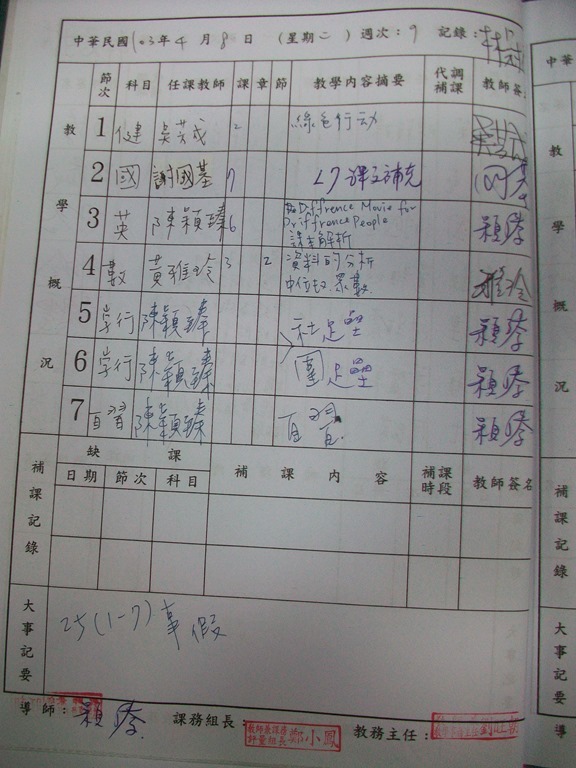 中華民國103年4月8日 (星期二) 週次:9 記錄:
節次 科目 任課教師 課 章 節 教學內容摘要 代調補課 教師簽
教學概況
1 健 吳英成 2 綠色行动
2 國 謝國基 7 L7課文補充
3 英 陳穎臻 6 Diffrence Movie for
Driffrence People
課本解析 穎臻
4 數 黃雅玲 3 2 資料的分析
中位數.眾數. 雅玲
5 学行 陳穎臻 社足壘 穎臻
6 学行 陳穎臻 團足壘 穎臻
7 自習 陳穎臻 自習. 穎臻
補課記錄
缺課 補課內容 補課時段 教師簽名
日期 節次 科目
大事記要
25(1-7)事假
導師: 穎臻 課務組長: 教師兼課務評量組長 鄭小鳳 教務主任:
中華
教學概況
補課記錄
大事記要
導